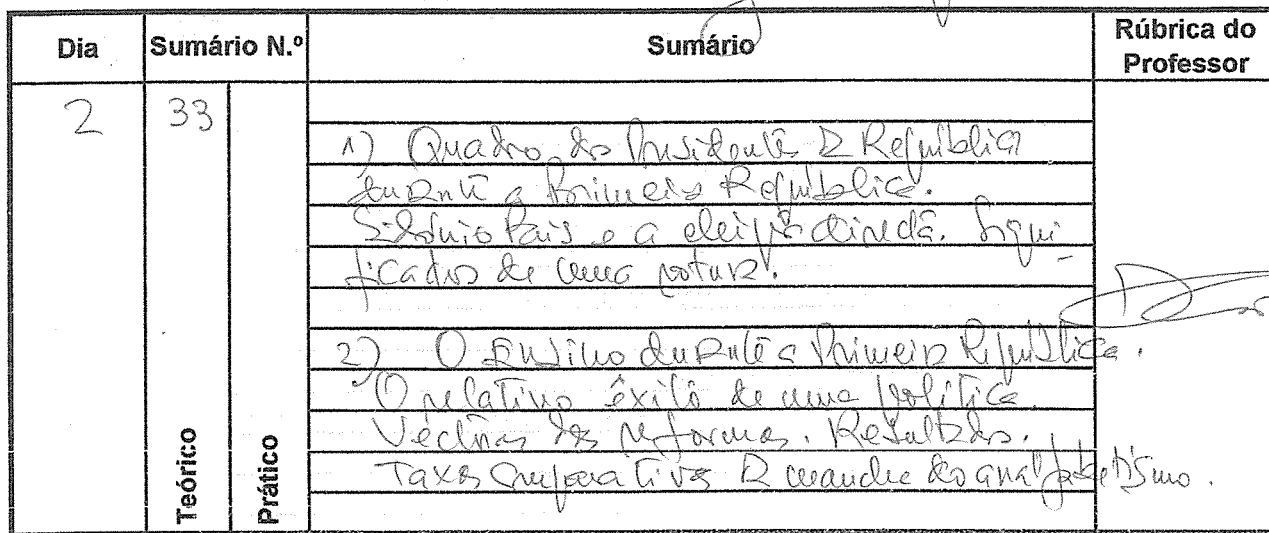 Dia Sumário N.º Sumário Rúbrica do Professor
2 33
Teórico
Prático
1) Quadro dos Presidentes da República
durante a Primeira República.
Sidónio Pais e a eleição directa. Signi-
ficados de uma rotura.
2) O Ensino durante a Primeira República.
O relativo êxito de uma política
Vectores das reformas. Resultados.
Taxas comparativas da mancha do analfabetismo.